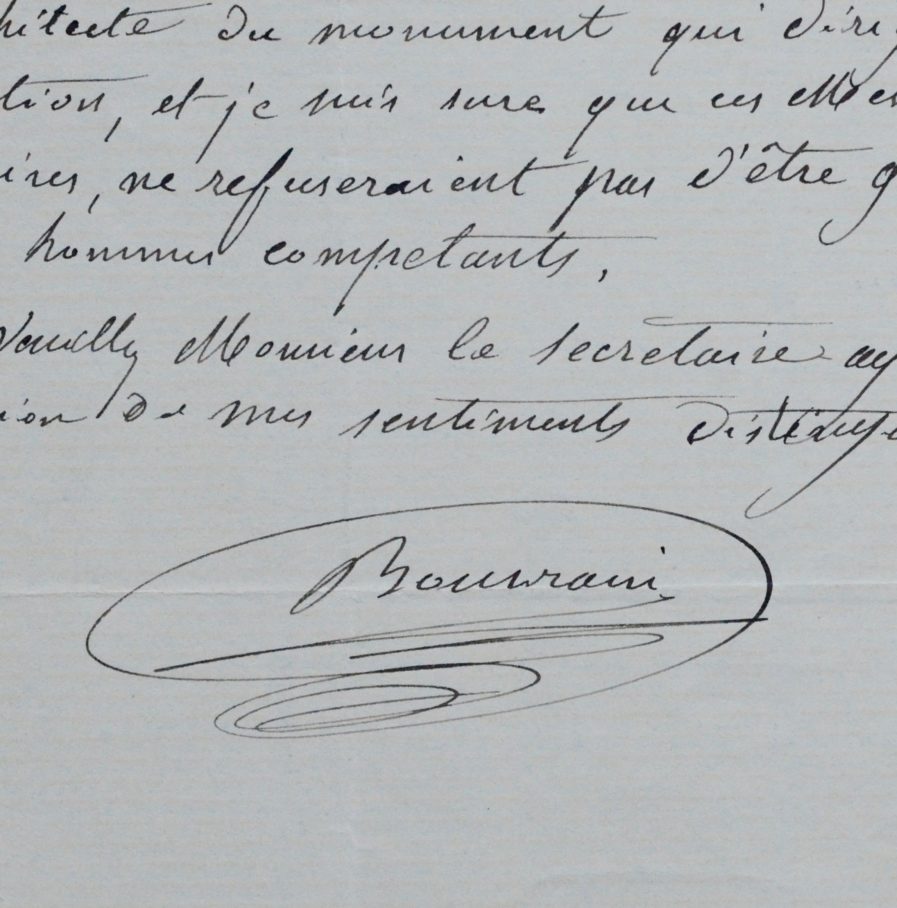 hitecte du monument qui dirig
tion, et je suis sure que ces Mes
ires, ne refuseraient pas d'être g
hommes competants,
Veuilly Monsieur le secretaire ag
ion de mes sentiments distingu